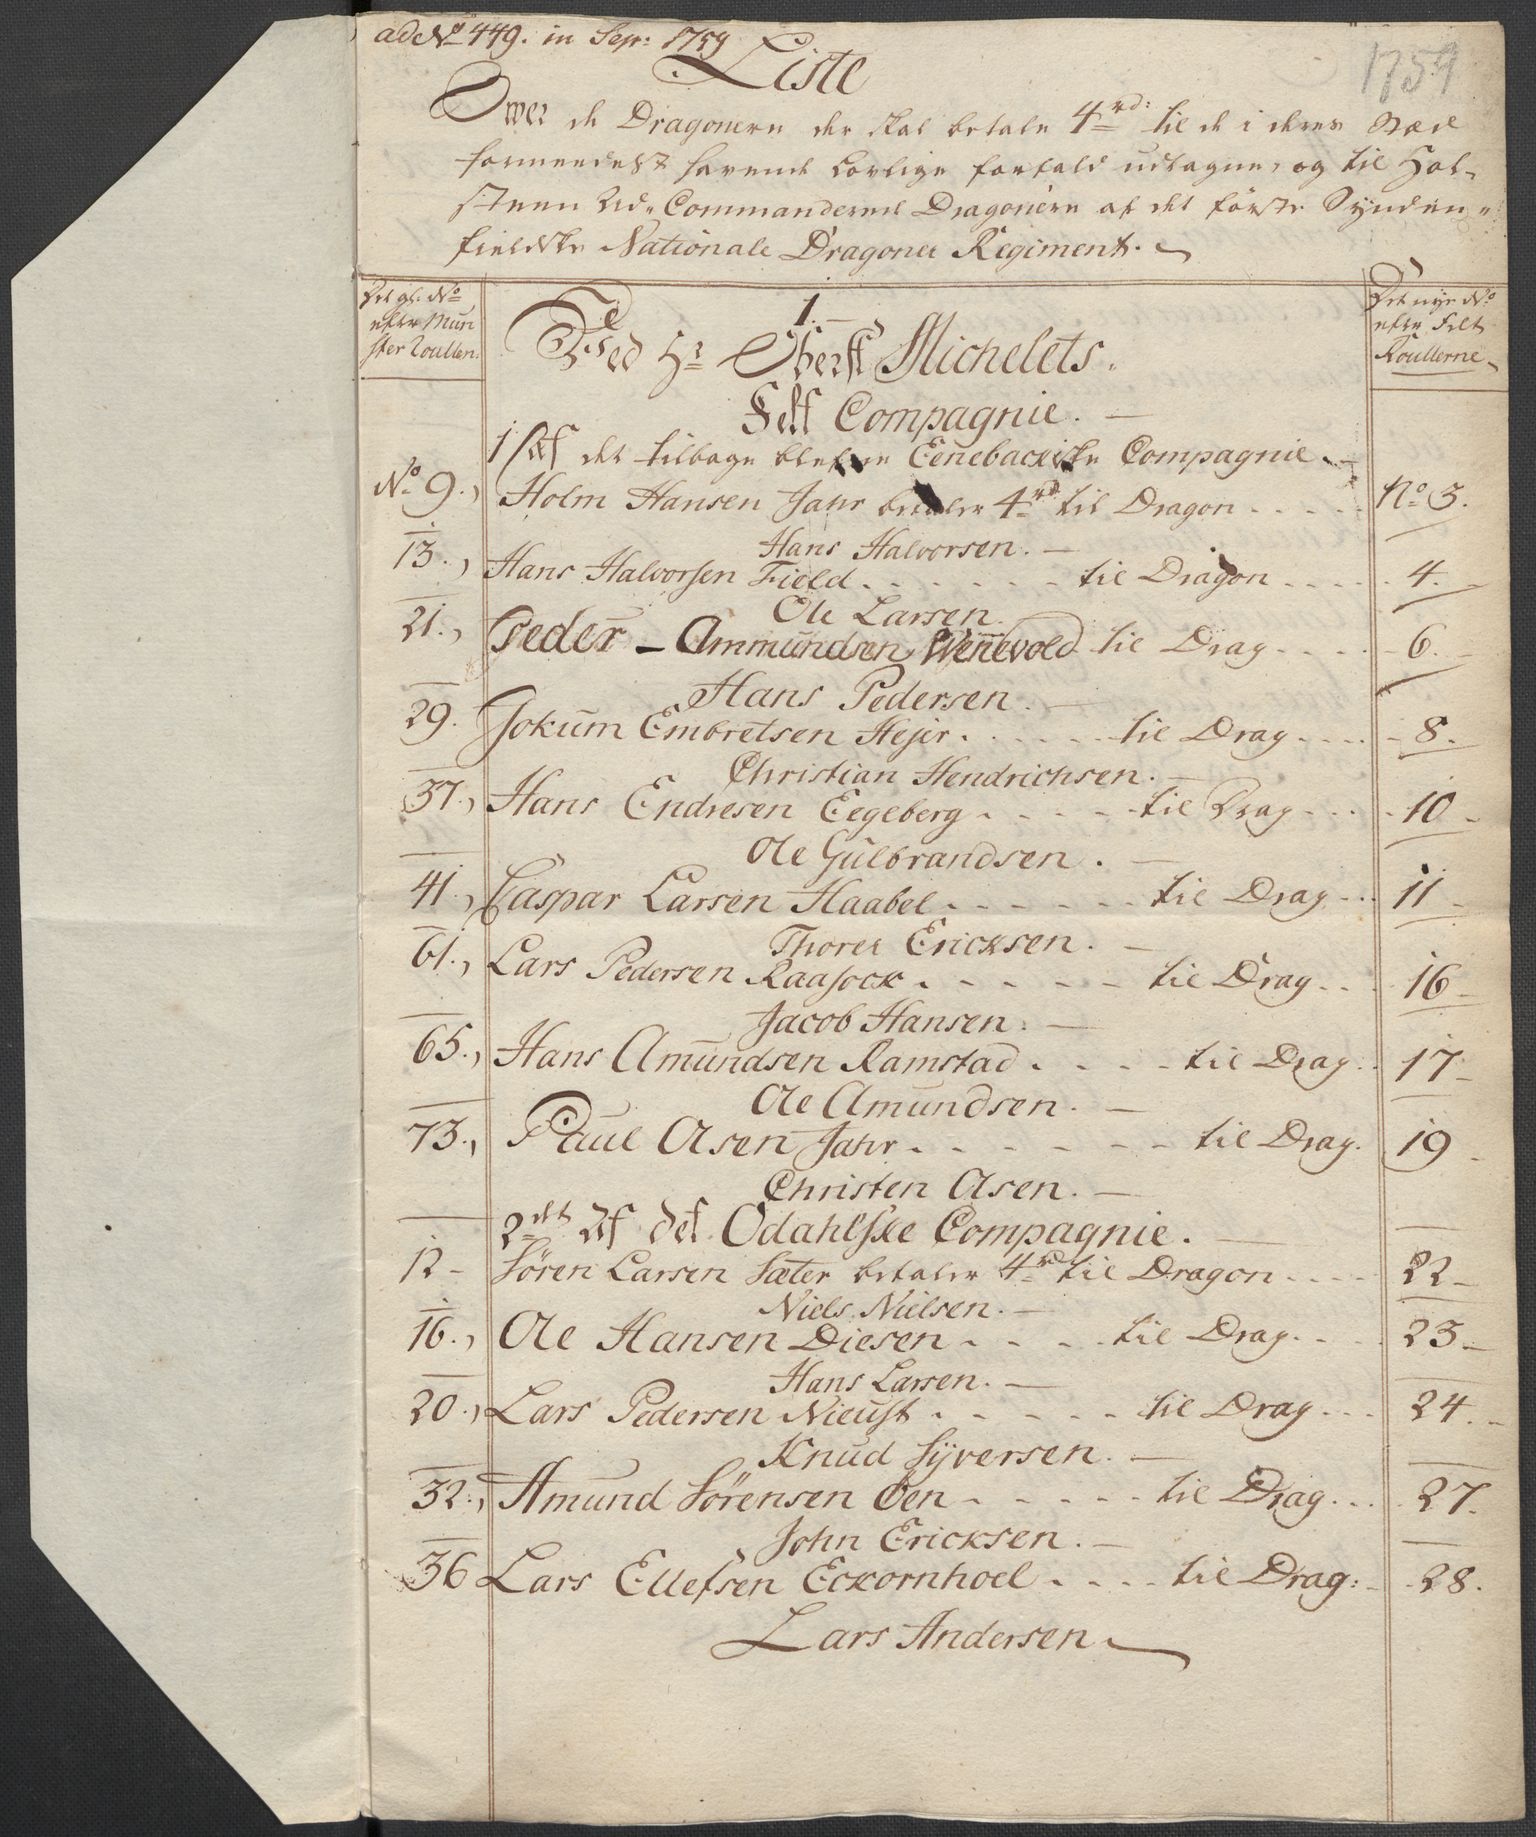 ad No 449. in Sepr: 1759
1759
Liste
Over de Dragonern der skal betale 4rd: til de i deres Stæd
formeedelst havende lovlige forfald udtagne, og til Hol-
steen Ud Commanderede Dragonern af det første Synden-
fieldske Nationale Dragoner Regiment.
Det gl. No
efter Mun
ster Roullen.
Det nye No
efter Felt
Roullerne
1.
Ved Hr Oberst Michelets.
Felt Compagnie.
1 Af det tilbage blefne Eenebackiske Compagnie.
No 9. Holm Hansen Jahr betaler 4rd til Dragon No 3.
Hans Halvorsen.
13. Hans Halvorsen Field til Dragon 4.
Ole Larsen.
21. Peder Ammundsen Wenevold til Drag 6.
Hans Pedersen.
29. Jokum Embretsen Hejer. til Drag 8.
Christian Hendrichsen.
37. Hans Endresen Eegeberg til Drag 10
Ole Gulbrandsen.
41. Caspar Larsen Haabel til Drag 11
Thorer Ericksen.
61. Lars Pedersen Raasock til Drag 16
Jacob Hansen.
65. Hans Amundsen Ramstad til Drag. 17
Ole Amundsen.
73. Paul Olsen Jahr til Drag. 19
Christen Olsen.
2det Af det Odahlske Compagnie.
12 Sören Larsen Sæter betaler 4rd til Dragon 22
Niels Nielsen.
16. Ole Hansen Diesen til Drag. 23
Hans Larsen.
20. Lars Pedersen Nieust til Drag 24.
Knud Syversen.
32. Amund Sörensen Öen til Drag. 27.
John Ericksen.
36 Lars Ellefsen Eckornhoel til Drag: 28.
Lars Andersen